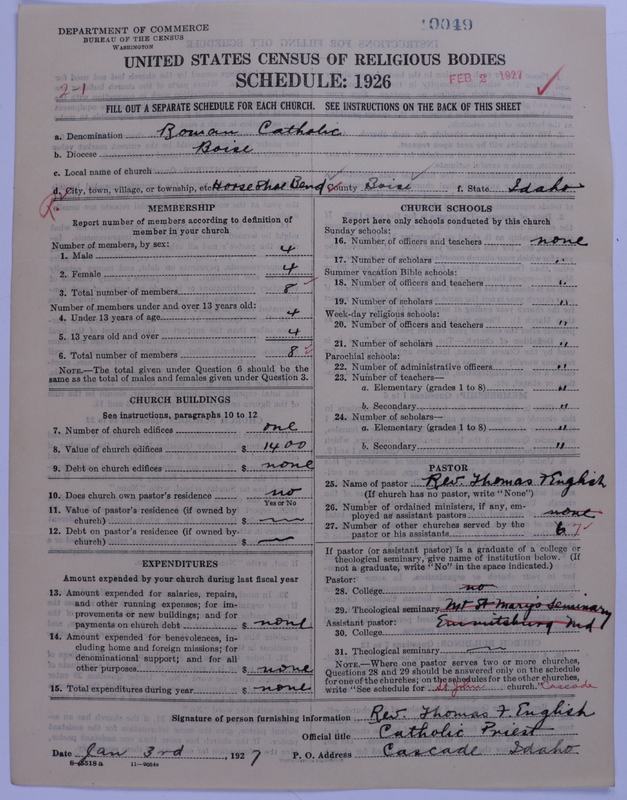 DEPARTMENT OF COMMERCE
BUREAU OF THE CENSUS
WASHINGTON
UNITED STATES CENSUS OF RELIGIOUS BODIES
SCHEDULE: 1926
FEB 2 1927
2-1
FILL OUT A SEPARATE SCHEDULE FOR EACH CHURCH. SEE INSTRUCTIONS ON THE BACK OF THIS SHEET
a. Denomination Roman Catholic
b. Diocese Boise
c. Local name of church
d. City, town, village, or township, etc. Horse Shoe Bend County Boise f. State Idaho
MEMBERSHIP
Report number of members according to definition of
member in your church
Number of members, by sex:
1. Male 4
2. Female 4
3. Total number of members 8
Number of members under and over 13 years old:
4. Under 13 years of age 4
5. 13 years old and over 4
6. Total number of members 8
NOTE.—The total given under Question 6 should be the
same as the total of males and females given under Question 3.
CHURCH BUILDINGS
See instructions, paragraphs 10 to 12
7. Number of church edifices one
8. Value of church edifices $ 1400
9. Debt on church edifices $ none
10. Does church own pastor's residence no
Yes or No
11. Value of pastor's residence (if owned by
church) $
12. Debt on pastor's residence (if owned by
church) $
EXPENDITURES
Amount expended by your church during last fiscal year
13. Amount expended for salaries, repairs,
and other running expenses; for im-
provements or new buildings; and for
payments on church debt $ none
14. Amount expended for benevolences, in-
cluding home and foreign missions; for
denominational support; and for all
other purposes $ none
15. Total expenditures during year $ none
CHURCH SCHOOLS
Report here only schools conducted by this church
Sunday schools:
16. Number of officers and teachers none
17. Number of scholars "
Summer vacation Bible schools:
18. Number of officers and teachers "
19. Number of scholars "
Week-day religious schools:
20. Number of officers and teachers "
21. Number of scholars "
Parochial schools:
22. Number of administrative officers "
23. Number of teachers—
a. Elementary (grades 1 to 8) "
b. Secondary "
24. Number of scholars—
a. Elementary (grades 1 to 8) "
b. Secondary "
PASTOR
25. Name of pastor Rev. Thomas F English
(If church has no pastor, write "None")
26. Number of ordained ministers, if any, em-
ployed as assistant pastors none
27. Number of other churches served by the
pastor or his assistants 6 7
If pastor (or assistant pastor) is a graduate of a college or
theological seminary, give name of institution below. (If
not a graduate, write "No" in the space indicated.)
Pastor:
28. College no
29. Theological seminary Mt St Marys Seminary
Assistant pastor: Emmitsburg Md
30. College
31. Theological seminary
NOTE.—Where one pastor serves two or more churches,
Questions 28 and 29 should be answered only on the schedule
for one of the churches; on the schedules for the other churches,
write "See schedule for St John church." Cascade
Signature of person furnishing information Rev. Thomas F. English
Official title Catholic Priest
Date Jan 3rd, 1927 P. O. Address Cascade Idaho